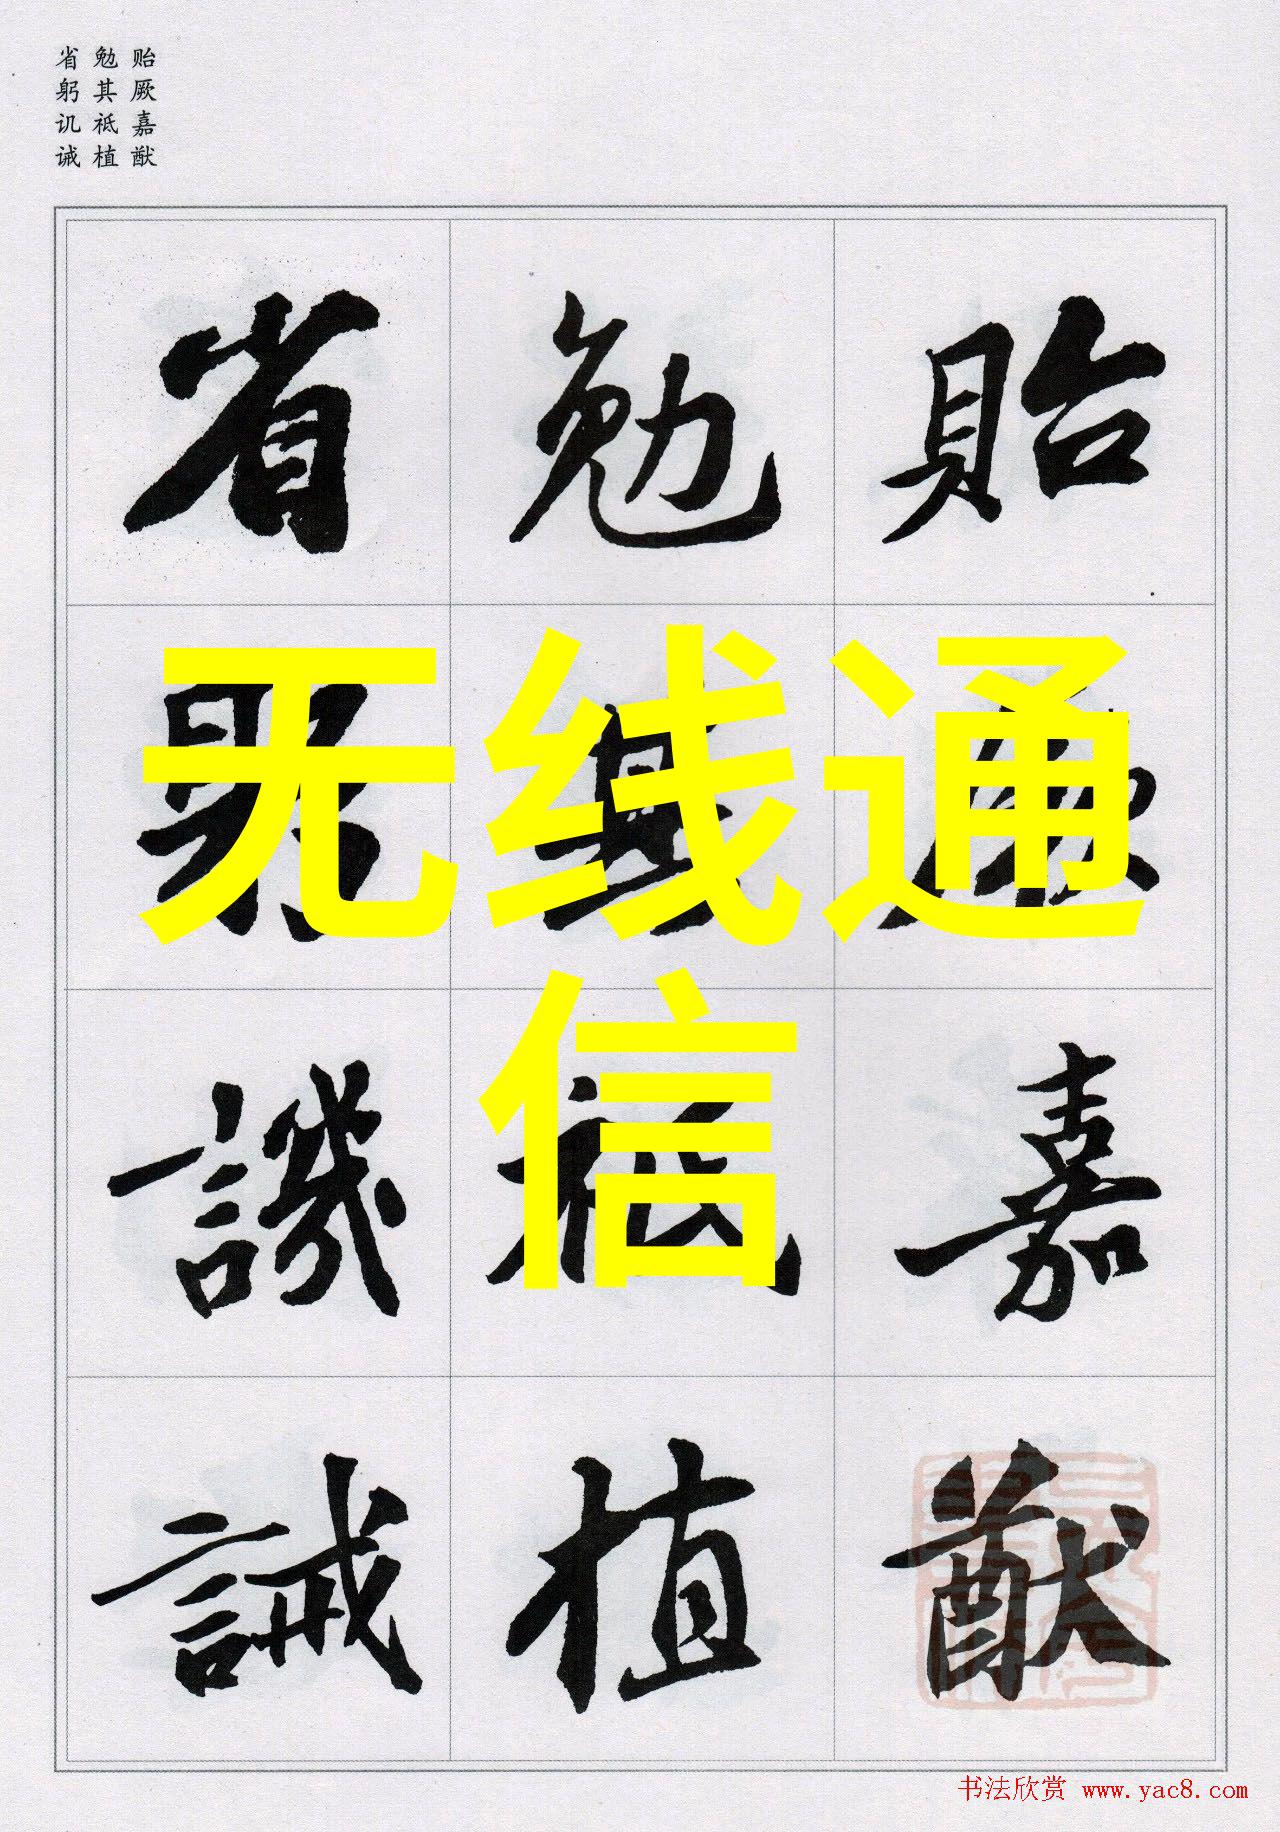 贻厥嘉猷
勉其祗植
省躬讥诫
貽厥嘉猷
勉其祗植
省躬譏誡
无线通
信
书法欣赏 www.yac8.com